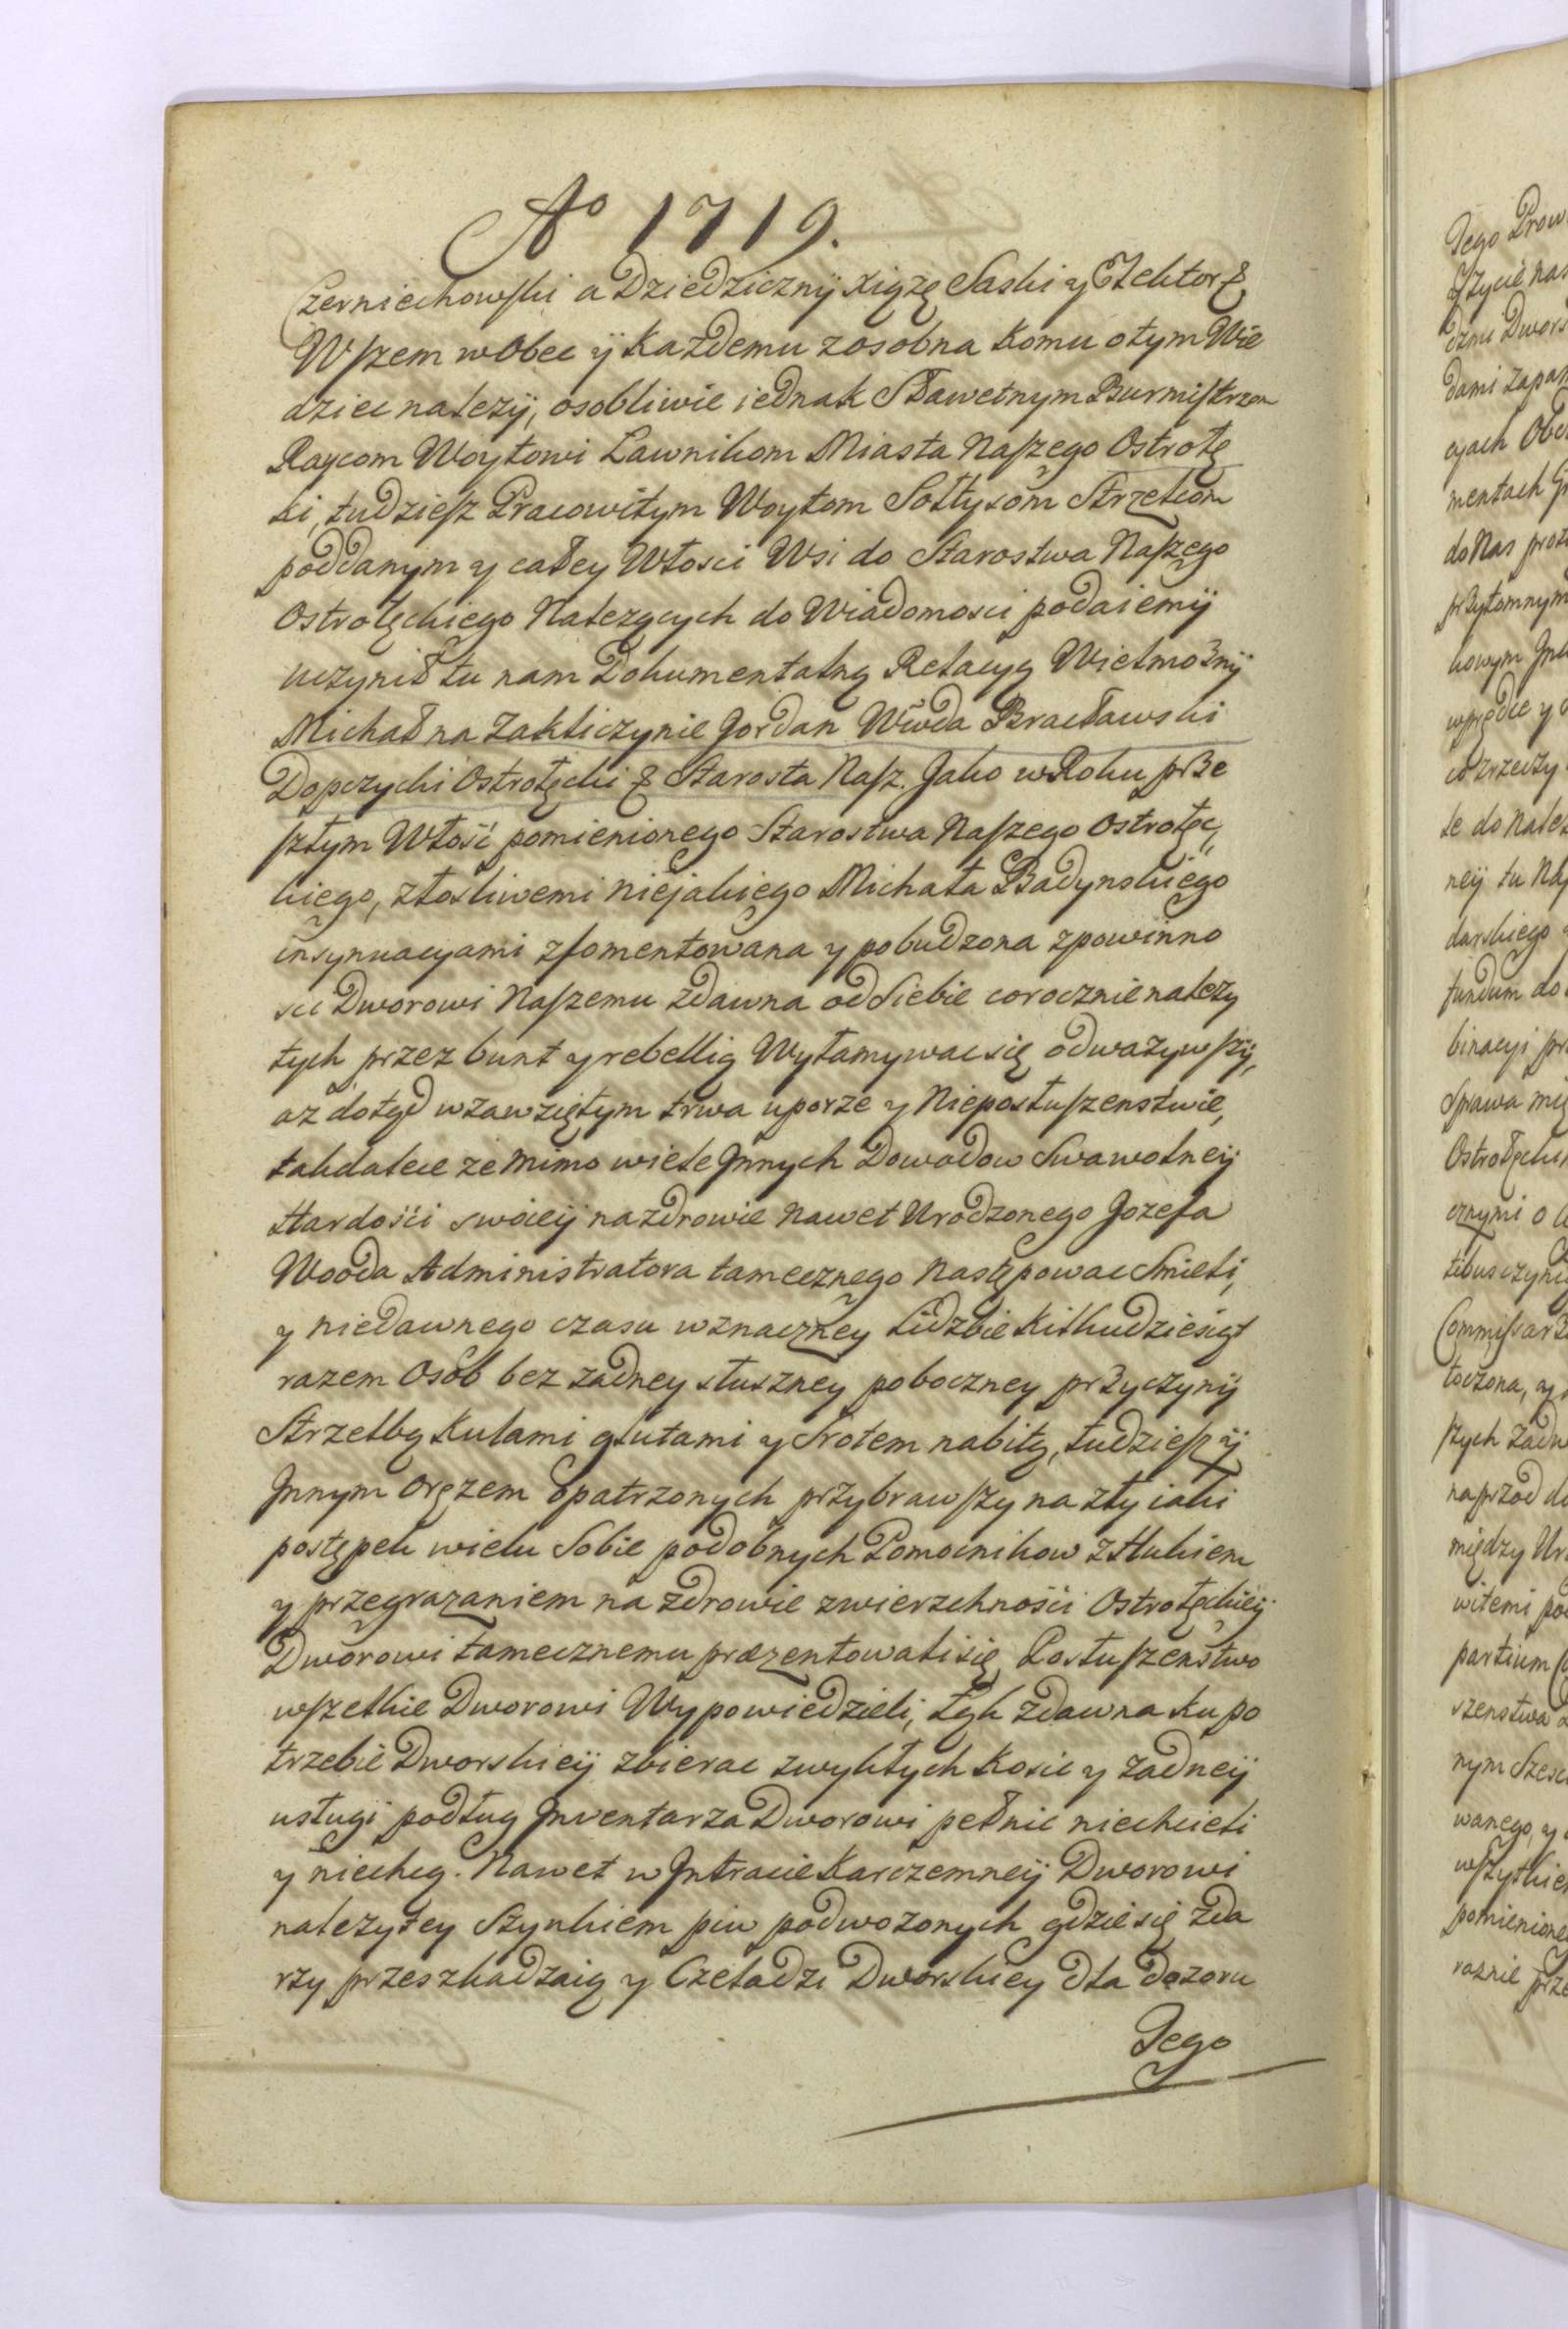 Ao 1719.
Czerniechowski a Dziedzicznÿ Xiążę Saski y Elektor &
Wszem wObec ÿ Każdemu zosobna Komu otym Wie
dziec nalezÿ, osobliwie iednak Sławetnym Burmistrzom
Raycom Woytowi Ławnikom Miasta Naszego Ostrołę
ki, tudziesz Pracowitym Woytom Sołtysom Strzelcom
poddanym y całey Włosci Wsi do Starostwa Naszego
Ostrołęckiego Nalezących do Wiadomosci podaiemÿ
uczynił tu nam Dokumentalną Relacyą Wielmożnÿ
Michał na Zakliczynie Jordan Wwda Bracławski
Dopczycki Ostrołęcki & Starosta Nasz. Jako wRoku prze
szłym Włość pomienionego Starostwa Naszego Ostrołęc,
kiego, złosliwemi niejakiego Michała Badynskiego
insynuacyami zfomentowana y pobudzona zpowinno
sci Dworowi Naszemu zdawna od Siebie corocznie nalezy
tych przez bunt y rebellią Wyłamywac się odwazywszÿ,
az dotąd wzawziętym trwa uporze y Nieposłuszenstwie,
takdalece ze Mimo wiele Jnnych Dowodow Swawolneÿ
Hardości swoieÿ nazdrowie nawet Urodzonego Jozefa
Wooda Administratora tamecznego Następowac Smieli,
y niedawnego czasu wznaczney Lidzbie Kilkudziesiąt
razem Osob bez zadney słuszney poboczney przyczynÿ
Strzelbą Kulami glutami y Srotem nabitą, tudziesz ÿ
Jnnym Oręzem opatrzonych przybrawszy na zły iaki
postępek wielu Sobie podobnych Pomocnikow z Hukiem
y przegrazaniem na zdrowie zwierzchności Ostrołęckieÿ
Dworowi tamecznemu prezentowali się Posłuszenstwo
wszelkie Dworowi Wypowiedzieli, Łąk zdawna ku po
trzebie Dworskieÿ zbierac zwykłych Kosic y zadneÿ
usługi podług Jnventarza Dworowi pełnic niechcieli
y niechcą. Nawet w Jntracie Karczemneÿ Dworowi
nalezytey Szynkiem piw podwozonych gdzie się zda
rzy przeszkadzaią y Czeladzi Dworskiey dla dozoru
Tego